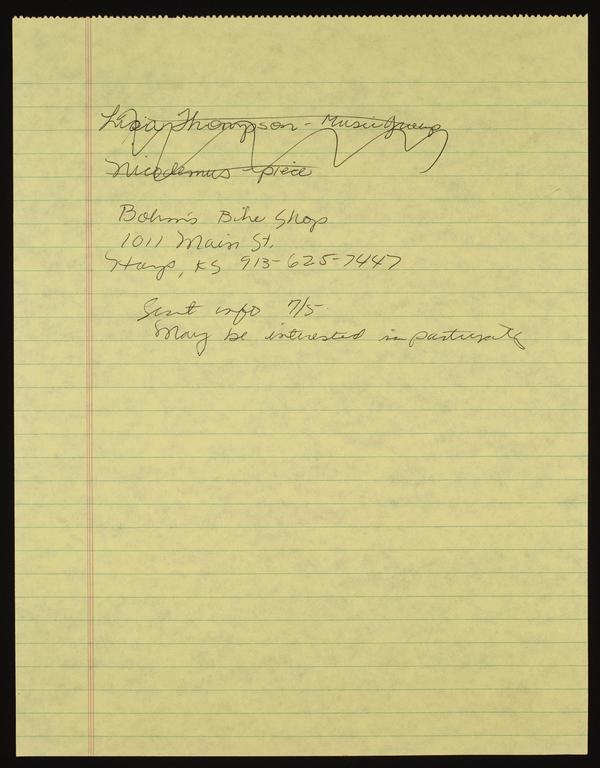 Thompson - Music Group
Nicodemus - piece
Bohm's Bike Shop
1011 Main St.
Hays, KS 913-625-7447
Sent info 7/5
May be interested in